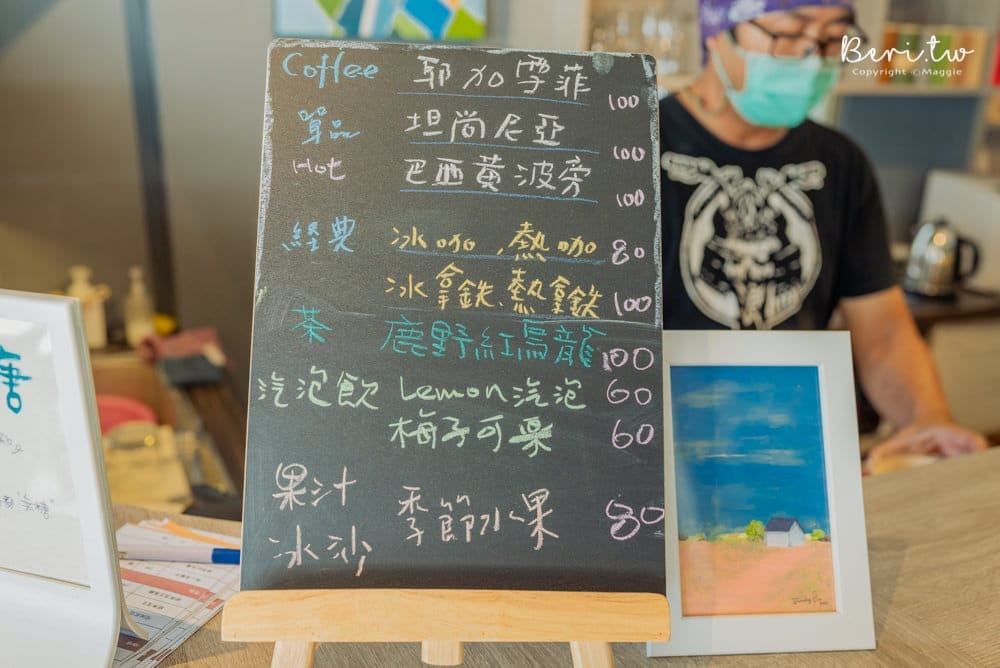 Beri.tw
Copyright ©Maggie
Coffee 耶加雪菲 100
單品 坦尚尼亞 100
Hot 巴西黃波旁 100
経典 冰咖、熱咖 80
冰拿鉄、熱拿鉄 100
茶 鹿野紅烏龍 100
汽泡飲 Lemon汽泡 60
梅子可樂 60
果汁 季節水果 80
冰沙
唐